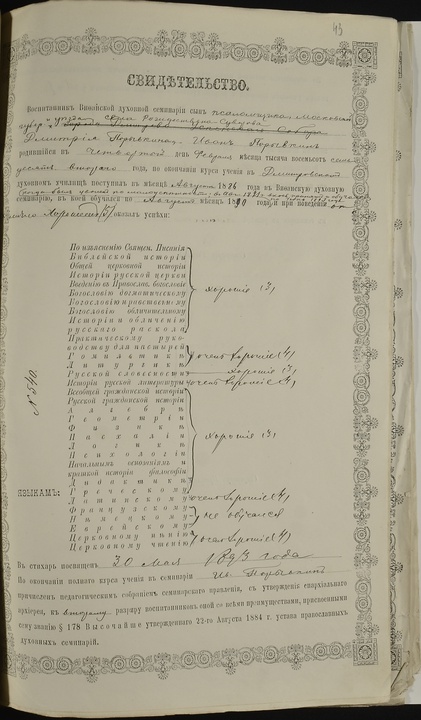 43
СВИДѢТЕЛЬСТВО.
Воспитанникъ Виѳанской духовной семинаріи сынъ псаломщика Московской
губер. и уѣзда села
Димитрія Порывкина Иванъ Порывкинъ
родившійся въ четвертый день Февраля мѣсяца тысяча восемьсотъ семь
десятъ втораго года, по окончаніи курса ученія въ Дмитровскомъ
духовномъ училищѣ поступилъ въ мѣсяцѣ Августѣ 1886 года въ Виѳанскую духовную
семинарію, въ коей обучался по мѣсяцъ 18 года и при поведеніи
оказалъ успѣхи:
По изъясненію Священ. Писанія
Библейской исторіи
Общей церковной исторіи
Исторіи русской церкви
Введенію въ Православ. богословіе
Богословію догматическому
Богословію нравственному
Богословію обличительному
Исторіи и обличенію
русскаго раскола
хорошіе (3)
Практическому руко-
водству для пастырей
Гомилетикѣ
Литургикѣ
очень хорошіе (4)
Русской словесности хорошіе (3)
Исторіи русской литературы очень хорошіе (4)
Всеобщей гражданской исторіи
Русской гражданской исторіи
Алгебрѣ
Геометріи
Физикѣ
Пасхаліи
Логикѣ
Психологіи
Начальнымъ основаніямъ и
краткой исторіи философіи
Дидактикѣ
хорошіе (3)
№ 540.
ЯЗЫКАМЪ:
Греческому
Латинскому очень хорошіе (4)
Французскому
Нѣмецкому
Еврейскому
не обучался
Церковному пѣнію
Церковному чтенію
очень хорошіе (4)
Въ стихарь посвященъ 30 Мая 1893 года
По окончаніи полнаго курса ученія въ семинаріи Ив. Порывкинъ
причисленъ педагогическимъ собраніемъ семинарскаго правленія, съ утвержденія епархіальнаго
архіерея, къ второму разряду воспитанниковъ оной со всѣми преимуществами, присвоенными
сему званію § 178 Высочайше утвержденнаго 22-го Августа 1884 г. устава православныхъ
духовныхъ семинарій.